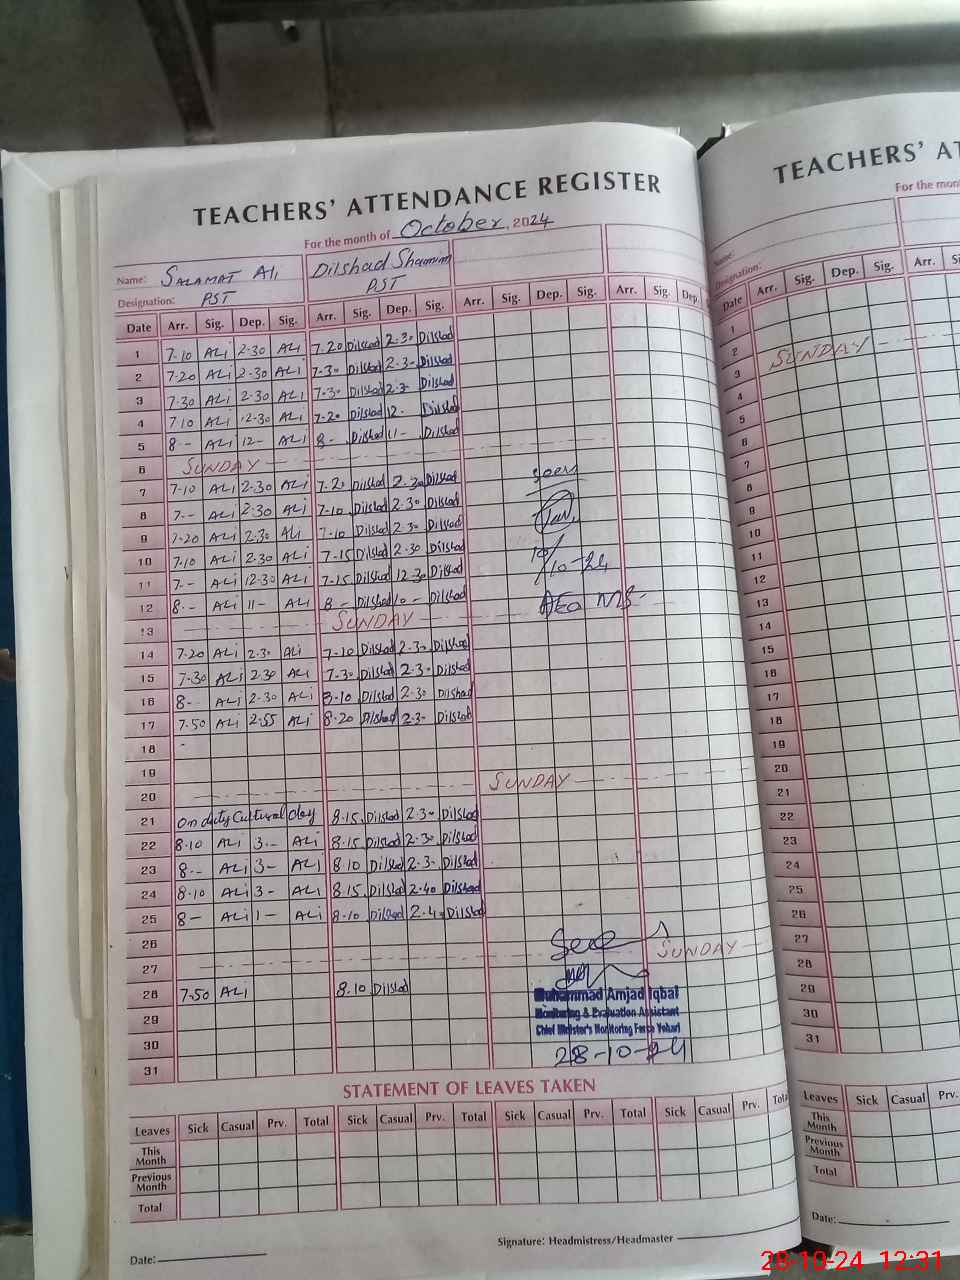 TEACHERS' ATTENDANCE REGISTER
For the month of October, 2024
Name: SALAMAT ALI Dilshad Shamim
Designation: PST PST
Date Arr. Sig. Dep. Sig. Arr. Sig. Dep. Sig. Arr. Sig. Dep. Sig. Arr. Sig. Dep.
1 7-10 ALi 2-30 ALi 7-20 Dilshad 2-30 Dilshad
2 7-20 ALi 2-30 ALi 7-30 Dilshad 2-30 Dilshad
3 7-30 ALi 2-30 ALi 7-30 Dilshad 2-30 Dilshad
4 7-10 ALi 12-30 ALi 7-20 Dilshad 12- Dilshad
5 8-- ALi 12- ALi 8- Dilshad 11- Dilshad
6 SUNDAY
7 7-10 ALi 2-30 ALi 7-20 Dilshad 2-30 Dilshad
8 7-- ALi 2-30 ALi 7-10 Dilshad 2-30 Dilshad
9 7-20 ALi 2-30 ALi 7-10 Dilshad 2-30 Dilshad
10 7-10 ALi 2-30 ALi 7-15 Dilshad 2-30 Dilshad
11 7-- ALi 12-30 ALi 7-15 Dilshad 12-30 Dilshad
12 8-- ALi 11- ALi 8- Dilshad 10- Dilshad
13 SUNDAY
14 7-20 ALi 2-30 ALi 7-20 Dilshad 2-30 Dilshad
15 7-30 ALi 2-30 ALi 7-30 Dilshad 2-30 Dilshad
16 8-- ALi 2-30 ALi 8-10 Dilshad 2-30 Dilshad
17 7-50 ALi 2-55 ALi 8-20 Dilshad 2-3- Dilshad
18
19
20 SUNDAY
21 on duty Cultural day 8-15 Dilshad 2-30 Dilshad
22 8-10 ALi 3-- ALi 8-15 Dilshad 2-30 Dilshad
23 8-- ALi 3- ALi 8 10 Dilshad 2-3- Dilshad
24 8-10 ALi 3- ALi 8-15 Dilshad 2-40 Dilshad
25 8- ALi 1- ALi 8-10 Dilshad 2-40 Dilshad
26
27 SUNDAY
28 7-50 ALi 8-10 Dilshad
29
30
31
seen
10/10-24
AEO
Muhammad Amjad Iqbal
Monitoring & Evaluation Assistant
Chief Minister's Monitoring Force Vehari
28-10-24
STATEMENT OF LEAVES TAKEN
Leaves Sick Casual Prv. Total Sick Casual Prv. Total Sick Casual Prv. Total Sick Casual Prv. Total
This Month
Previous Month
Total
Date:
Signature: Headmistress/Headmaster
TEACHERS' AT
For the mon
Name:
Designation:
Date Arr. Sig. Dep. Sig. Arr.
1
2
3 SUNDAY
4
5
6
7
8
9
10
11
12
13
14
15
16
17
18
19
20
21
22
23
24
25
26
27
28
29
30
31
Leaves Sick Casual Prv.
This Month
Previous Month
Total
Date:
28-10-24 12:31